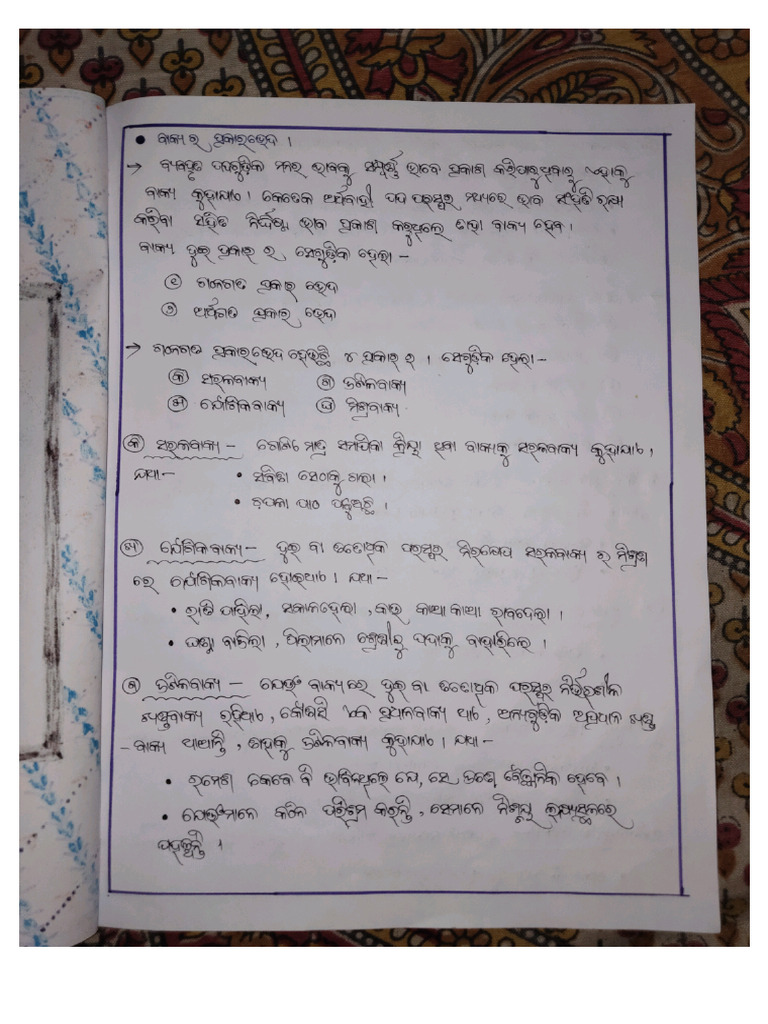 ● ବାକ୍ୟ ର ପ୍ରକାରଭେଦ ।
→ ବ୍ୟବହୃତ ପଦଗୁଡ଼ିକ ମନର ଭାବକୁ ସମ୍ପୂର୍ଣ୍ଣ ଭାବେ ପ୍ରକାଶ କରିପାରୁଥିବାରୁ ଏହାକୁ
ବାକ୍ୟ କୁହାଯାଏ । କେତେକ ଅର୍ଥବାହୀ ପଦ ପରସ୍ପର ମଧ୍ୟରେ ଭାବ ସଂହତି ରକ୍ଷା
କରିବା ସହିତ ନିର୍ଦ୍ଦିଷ୍ଟ ଭାବ ପ୍ରକାଶ କରୁଥିଲେ ତାହା ବାକ୍ୟ ହେବ ।
ବାକ୍ୟ ଦୁଇ ପ୍ରକାର ର ସେଗୁଡ଼ିକ ହେଲା -
୧ ଗଠନଗତ ପ୍ରକାର ଭେଦ
୨ ଅର୍ଥଗତ ପ୍ରକାର ଭେଦ
→ ଗଠନଗତ ପ୍ରକାରଭେଦ ହେଉଛି ୪ ପ୍ରକାର ର । ସେଗୁଡ଼ିକ ହେଲା -
କ ସରଳବାକ୍ୟ ଗ ଜଟିଳବାକ୍ୟ
ଖ ଯୌଗିକବାକ୍ୟ ଘ ମିଶ୍ରବାକ୍ୟ
କ ସରଳବାକ୍ୟ - ଗୋଟିଏ ମାତ୍ର ସମାପିକା କ୍ରିୟା ଥିବା ବାକ୍ୟକୁ ସରଳବାକ୍ୟ କୁହାଯାଏ ।
ଯଥା -
• ସବିତା ସେଠାକୁ ଗଲା ।
• ଚପଳା ପାଠ ପଢ଼ୁଅଛି ।
ଖ ଯୌଗିକବାକ୍ୟ - ଦୁଇ ବା ତତୋଧିକ ପରସ୍ପର ନିରପେକ୍ଷ ସରଳବାକ୍ୟ ର ମିଶ୍ରଣ
ରେ ଯୌଗିକବାକ୍ୟ ହୋଇଥାଏ । ଯଥା -
• ରାତି ପାହିଲା, ସକାଳହେଲା , କାଉ କାଆ କାଆ ରାବଦେଲା ।
• ଘଣ୍ଟା ବାଜିଲା , ପିଲାମାନେ ଶ୍ରେଣୀରୁ ପଦାକୁ ବାହାରିଲେ ।
ଗ ଜଟିଳବାକ୍ୟ - ଯେଉଁ ବାକ୍ୟ ରେ ଦୁଇ ବା ତତୋଧିକ ପରସ୍ପର ନିର୍ଭରଶୀଳ
ଖଣ୍ଡବାକ୍ୟ ରହିଥାଏ , କୌଣସି ଏକ ପ୍ରଧାନବାକ୍ୟ ଥାଏ , ଅନ୍ୟଗୁଡ଼ିକ ଅପ୍ରଧାନ ଖଣ୍ଡ
- ବାକ୍ୟ ଥାଆନ୍ତି , ତାହାକୁ ଜଟିଳବାକ୍ୟ କୁହାଯାଏ । ଯଥା -
• ରମେଶ କେବେ ବି ଭାବିନଥିଲେ ଯେ, ସେ ଜଣେ ବୈଜ୍ଞାନିକ ହେବେ ।
• ଯେଉଁମାନେ କଠିନ ପରିଶ୍ରମ କରନ୍ତି , ସେମାନେ ନିଶ୍ଚୟ ଲକ୍ଷ୍ୟସ୍ଥଳରେ
ପହଞ୍ଚନ୍ତି ।